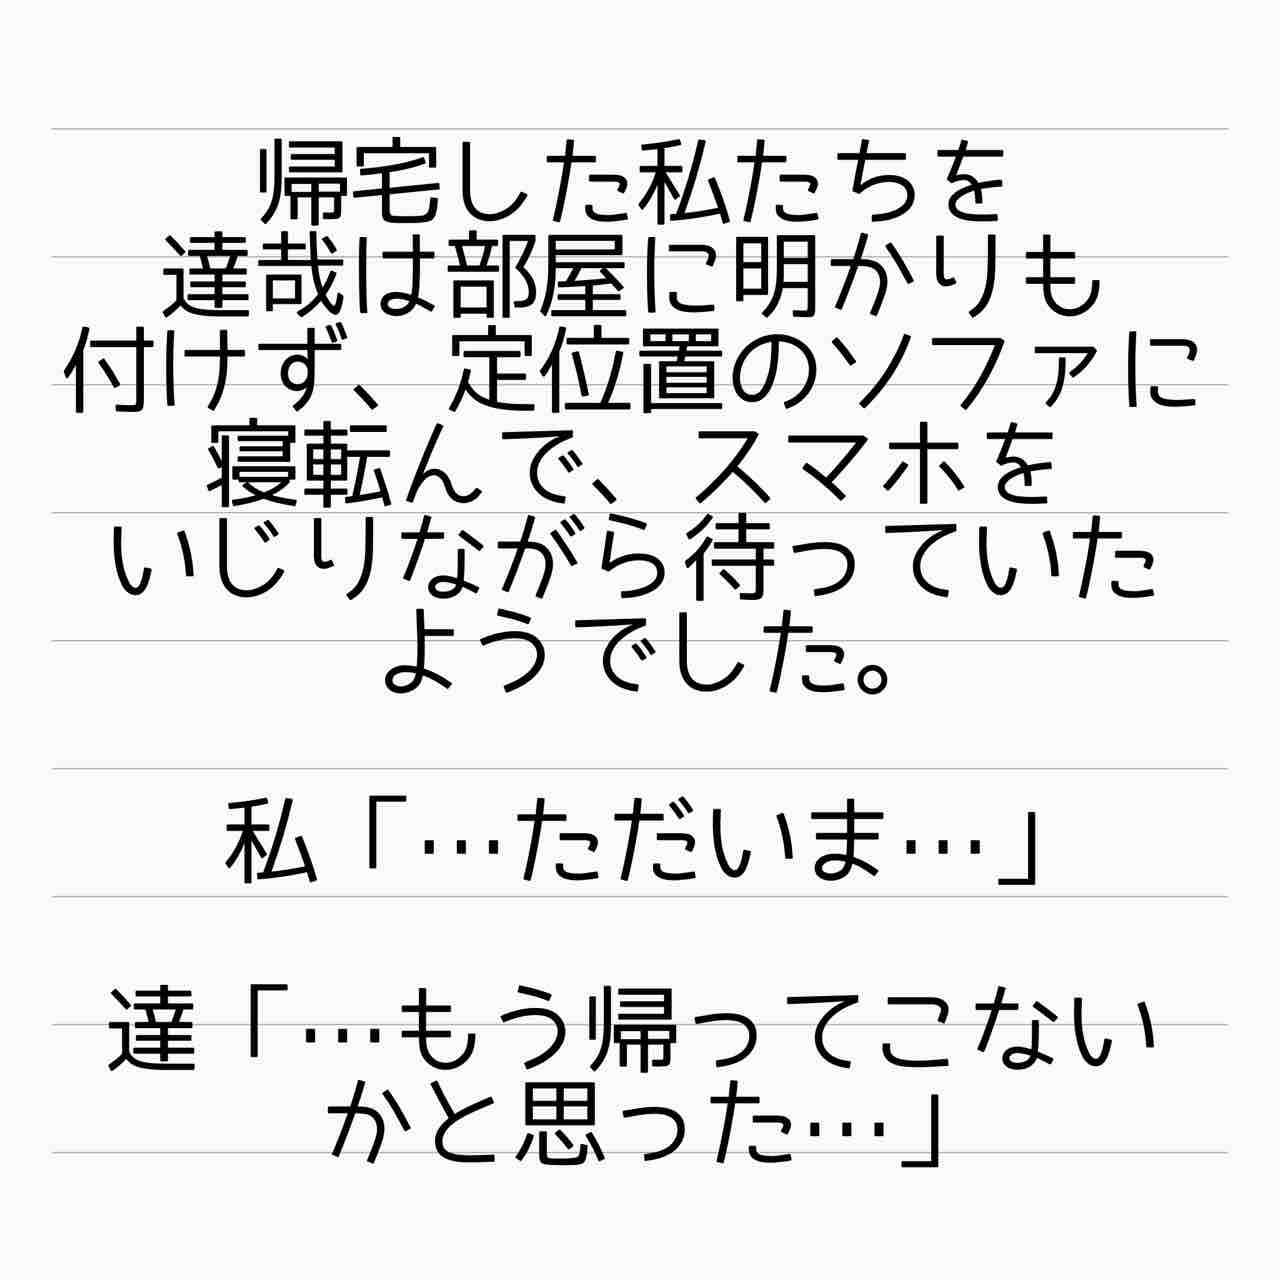 帰宅した私たちを
達哉は部屋に明かりも
付けず、定位置のソファに
寝転んで、スマホを
いじりながら待っていた
ようでした。
私「…ただいま…」
達「…もう帰ってこない
かと思った…」